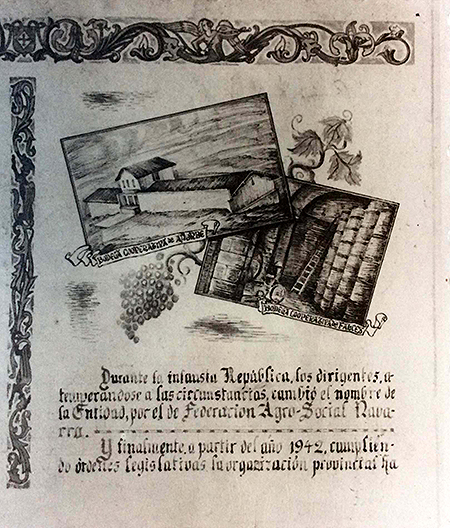 BODEGA COOPERATIVA DE AÑORBE
BODEGA COOPERATIVA DE FALCES
Durante la infausta República, los dirigentes, a-
temperándose a las circustantias, cambió el nombre de
la Entidad, por el de Federacion Agro-Social Nava-
rra.
Y finalmente, a partir del año 1942, cumplien-
do órdenes legislativas, la organización provincial ha